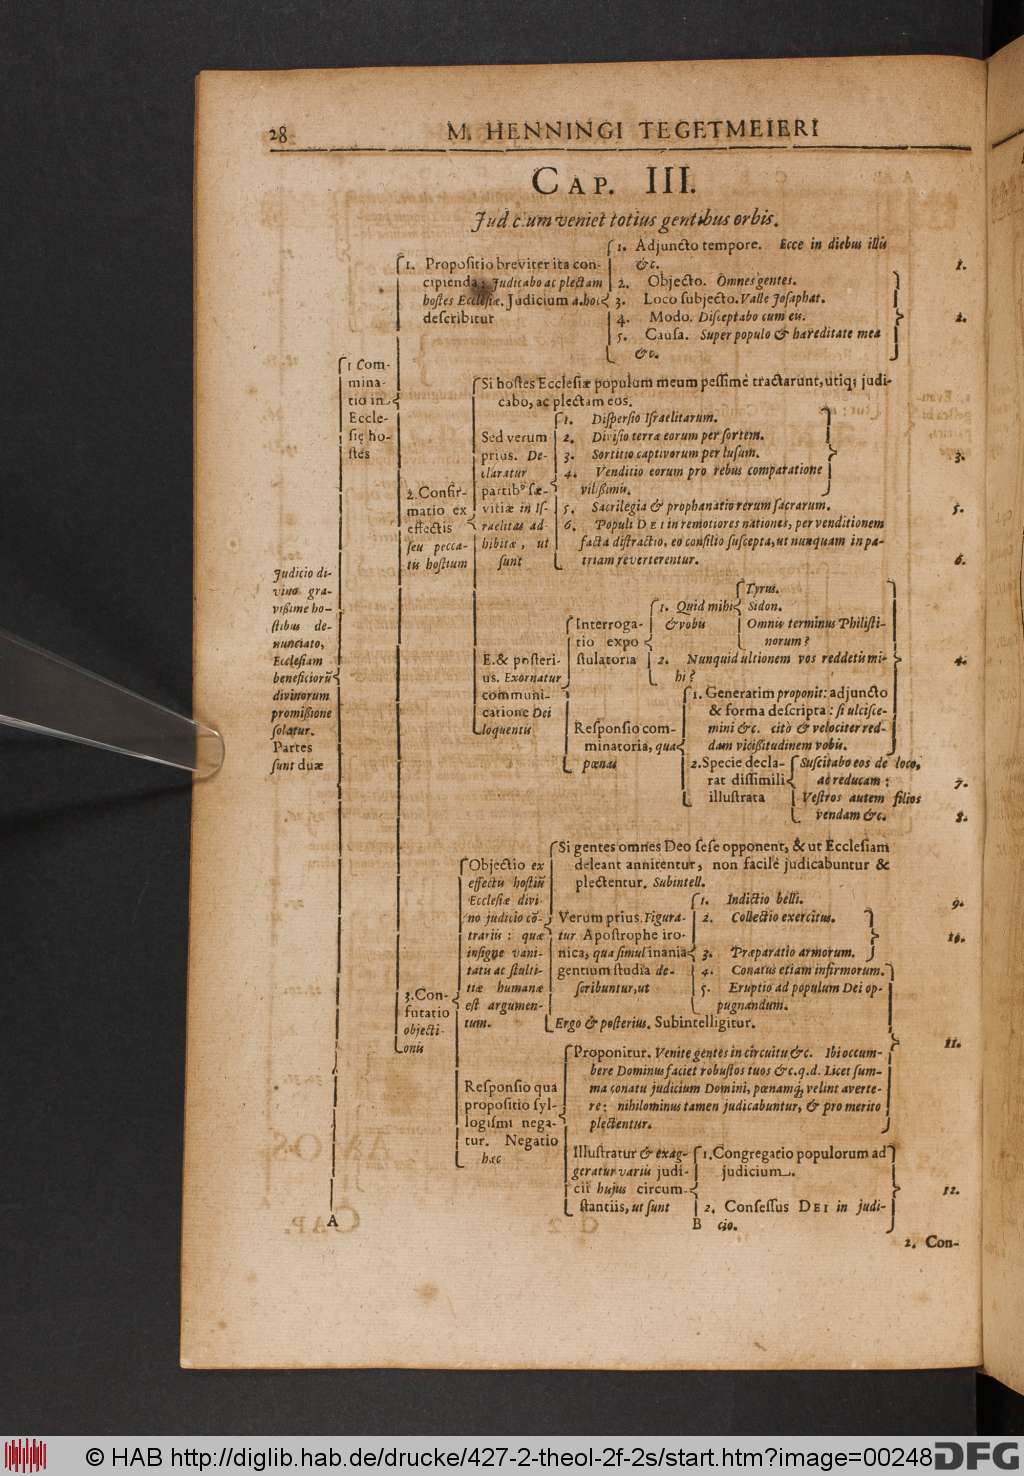 28
M. HENNINGI TEGETMEIERI
CAP. III.
veniet totius gentibus orbis.
Judicio di-
vino gra-
vißime ho-
stibus de-
nunciato,
Ecclesiam
beneficiorũ
divinorum
promißione
solatur.
Partes
sunt duæ
1 Com-
mina-
tio in
Eccle-
się ho-
stes
1. Propositio breviter ita con-
cipienda: Judicabo ac plectam
hostes Ecclesiæ. Judicium a. hoc
describitur
1. Adjuncto tempore. Ecce in diebus illis
&c.
2. Objecto. Omnes gentes.
3. Loco subjecto. Valle Josaphat.
4. Modo. Disceptabo cum eis.
5. Causa. Super populo & hæreditate mea
&c.
1.
2.
2. Confir-
matio ex
effectis
seu pecca-
tis hostium
Si hostes Ecclesiæ populum meum pessimè tractarunt, utiq; judi-
cabo, ac plectam eos.
Sed verum
prius. De-
claratur
partib⁹ sæ-
vitiæ in Is-
raelitas ad-
hibitæ, ut
sunt
1. Dispersio Israelitarum.
2. Divisio terræ eorum per sortem.
3. Sortitio captivorum per lusum.
4. Venditio eorum pro rebus comparatione
vilißimis.
5. Sacrilegia & prophanatio rerum sacrarum.
6. Populi DEI in remotiores nationes, per venditionem
facta distractio, eo consilio suscepta, ut nunquam in pa-
triam reverterentur.
3.
5.
6.
E. & posteri-
us. Exornatur
communi-
catione Dei
loquentis
Interroga-
tio expo-
stulatoria
1. Quid mihi
& vobis
Tyrus.
Sidon.
Omnis terminus Philisti-
norum?
2. Nunquid ultionem vos reddetis mi-
hi?
4.
Responsio com-
minatoria, qua
pœnas
1. Generatim proponit: adjuncto
& forma descripta: si ulcisce-
mini &c. citò & velociter red-
dam vicißitudinem vobis.
2. Specie decla-
rat dissimili
illustrata
Suscitabo eos de loco,
ac reducam:
Vestros autem filios
vendam &c.
7.
8.
3. Con-
futatio
objecti-
onis
Objectio ex
effectu hostiũ
Ecclesiæ divi-
no judicio cõ-
trariis: quæ
insigne vani-
tatis ac stulti-
tiæ humanæ
est argumen-
tum.
Si gentes omnes Deo sese opponent, & ut Ecclesiam
deleant annitentur, non facilè judicabuntur &
plectentur. Subintell.
Verum prius. Figura-
tur Apostrophe iro-
nica, qua simul inania
gentium studia de-
scribuntur, ut
1. Indictio belli.
2. Collectio exercitus.
3. Præparatio armorum.
4. Conatus etiam infirmorum.
5. Eruptio ad populum Dei op-
pugnandum.
Ergo & posterius. Subintelligitur.
9.
10.
11.
Responsio qua
propositio syl-
logismi nega-
tur. Negatio
hæc
Proponitur. Venite gentes in circuitu &c. Ibi occum-
bere Dominus faciet robustos tuos &c. q.d. Licet sum-
ma conatu judicium Domini, pœnamq́; velint averte-
re: nihilominus tamen judicabuntur, & pro merito
plectentur.
Illustratur & exag-
geratur variis judi-
cii hujus circum-
stantiis, ut sunt
1. Congregatio populorum ad
judicium.
2. Consessus DEI in judi-
cio.
12.
A
B
2. Con-
© HAB http://diglib.hab.de/drucke/427-2-theol-2f-2s/start.htm?image=00248
DFG